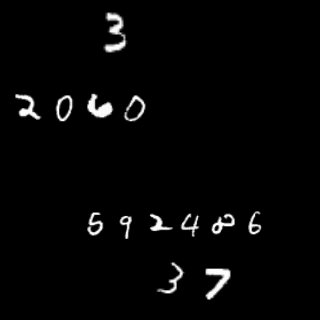 3
2060
592486
37